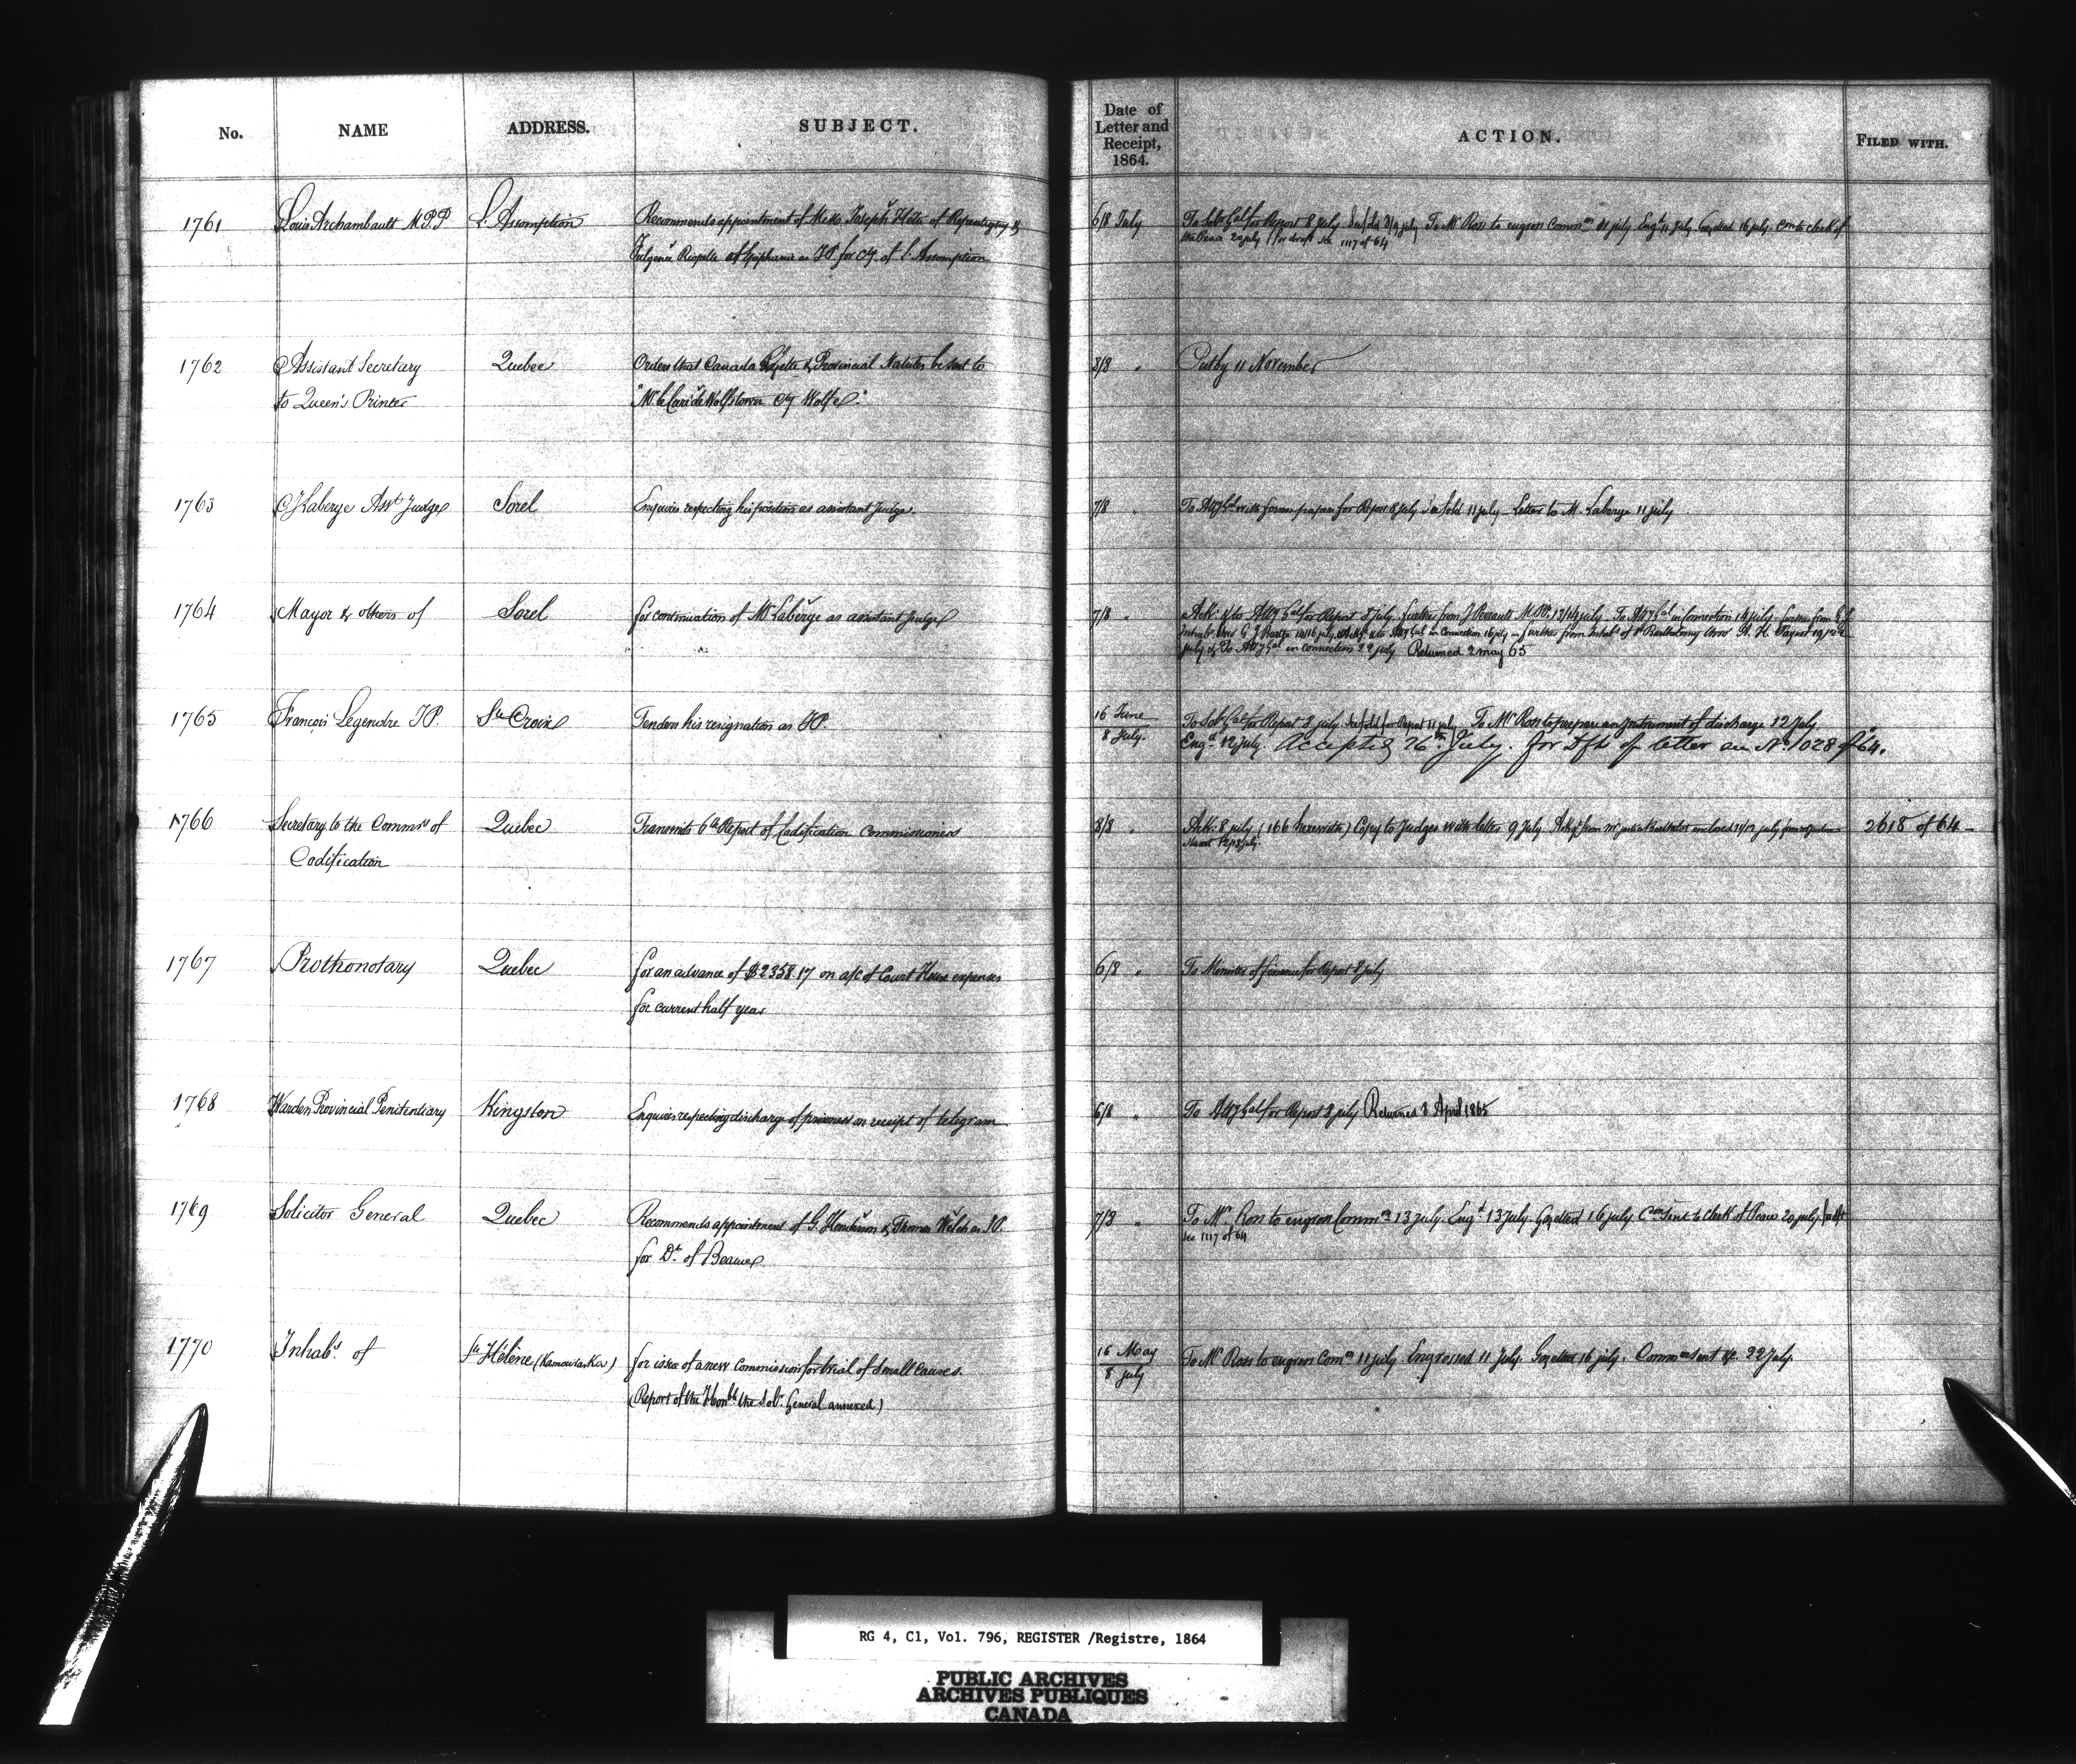 No. NAME ADDRESS. SUBJECT. Date of Letter and Receipt, 1864. ACTION. FILED WITH.
1761 Louis Archambault M.P.P. L'Assomption Recommends appointment of Joseph of Repentigny &
Riopelle as J.P. for Cy. of L'Assomption 6/8 July To Sol. Genl for Report 8 July To Mr Ross to engross Commn 11 July Engd 11 July Gazetted 16 July. Comn to clerk of
the Peace 22 July for draft see 1117 of 64
1762 Assistant Secretary Quebec Orders that Canada Gazette & Provincial Statutes be sent to 8/8 " Put by 11 November
to Queen's Printer "Mr le Curé de Wolfstown Cy Wolfe."
1763 Laberge Asst Judge Sorel Enquires respecting his position as assistant Judge. 7/8 " To Atty Genl with former papers for Report 8 July 11 July - Letter to M. Laberge 11 July
1764 Mayor & others of Sorel for continuation of Mr Laberge as assistant Judge 7/8 " Ack. & to Atty Genl for Report 8 July. further from J Perrault M.P.P. 13/14 July. To Atty Genl in connection 14 July. further from
14/16 July. Ack. & to Atty Genl in Connection 16 July - further from Inhabs of St Bartholomy
July & To Atty Genl in connection 22 July Returned 2 May 65
1765 François Legendre J.P. Ste Croix Tenders his resignation as J.P. 16 June
8 July. To Sol. Genl for Report 8 July for Report 11 July To Mr Ross to prepare an instrument of discharge 12 July
Engd 12 July. Accepted 26th July. for Dft of letter see No. 1028 of 64.
1766 Secretary to the Commrs of Quebec Transmits 6th Report of Codification Commissioners 8/8 " Ack. 8 July (166 herewith) Copy to Judges with letter 9 July 2618 of 64 -
Codification
1767 Prothonotary Quebec for an advance of $2358.17 on a/c of Court House expenses 6/8 " To Minister of finance for Report 8 July
for current half year
1768 Warden Provincial Penitentiary Kingston Enquires respecting discharge of prisoners on receipt of telegram. 6/8 " To Atty Genl for Report 8 July Returned 8 April 1865
1769 Solicitor General Quebec Recommends appointment of G. Henderson & Thomas Welsh as J.P. 7/8 " To Mr Ross to engross Commn 13 July. Engd 13 July. Gazetted 16 July. Comn Sent to Clerk of Peace 20 July. for dft
for Dt. of Beauce. see 1117 of 64
1770 Inhabs. of Ste Hélène (Kamouraska) for issue of a new Commission for trial of small Causes. 16 May
8 July To Mr Ross to engross Comn 11 July Engrossed 11 July. Gazetted 16 July. Commn sent 22 July.
(Report of the Honble the Solr. General annexed)
RG 4, C1, Vol. 796, REGISTER /Registre, 1864
PUBLIC ARCHIVES
ARCHIVES PUBLIQUES
CANADA